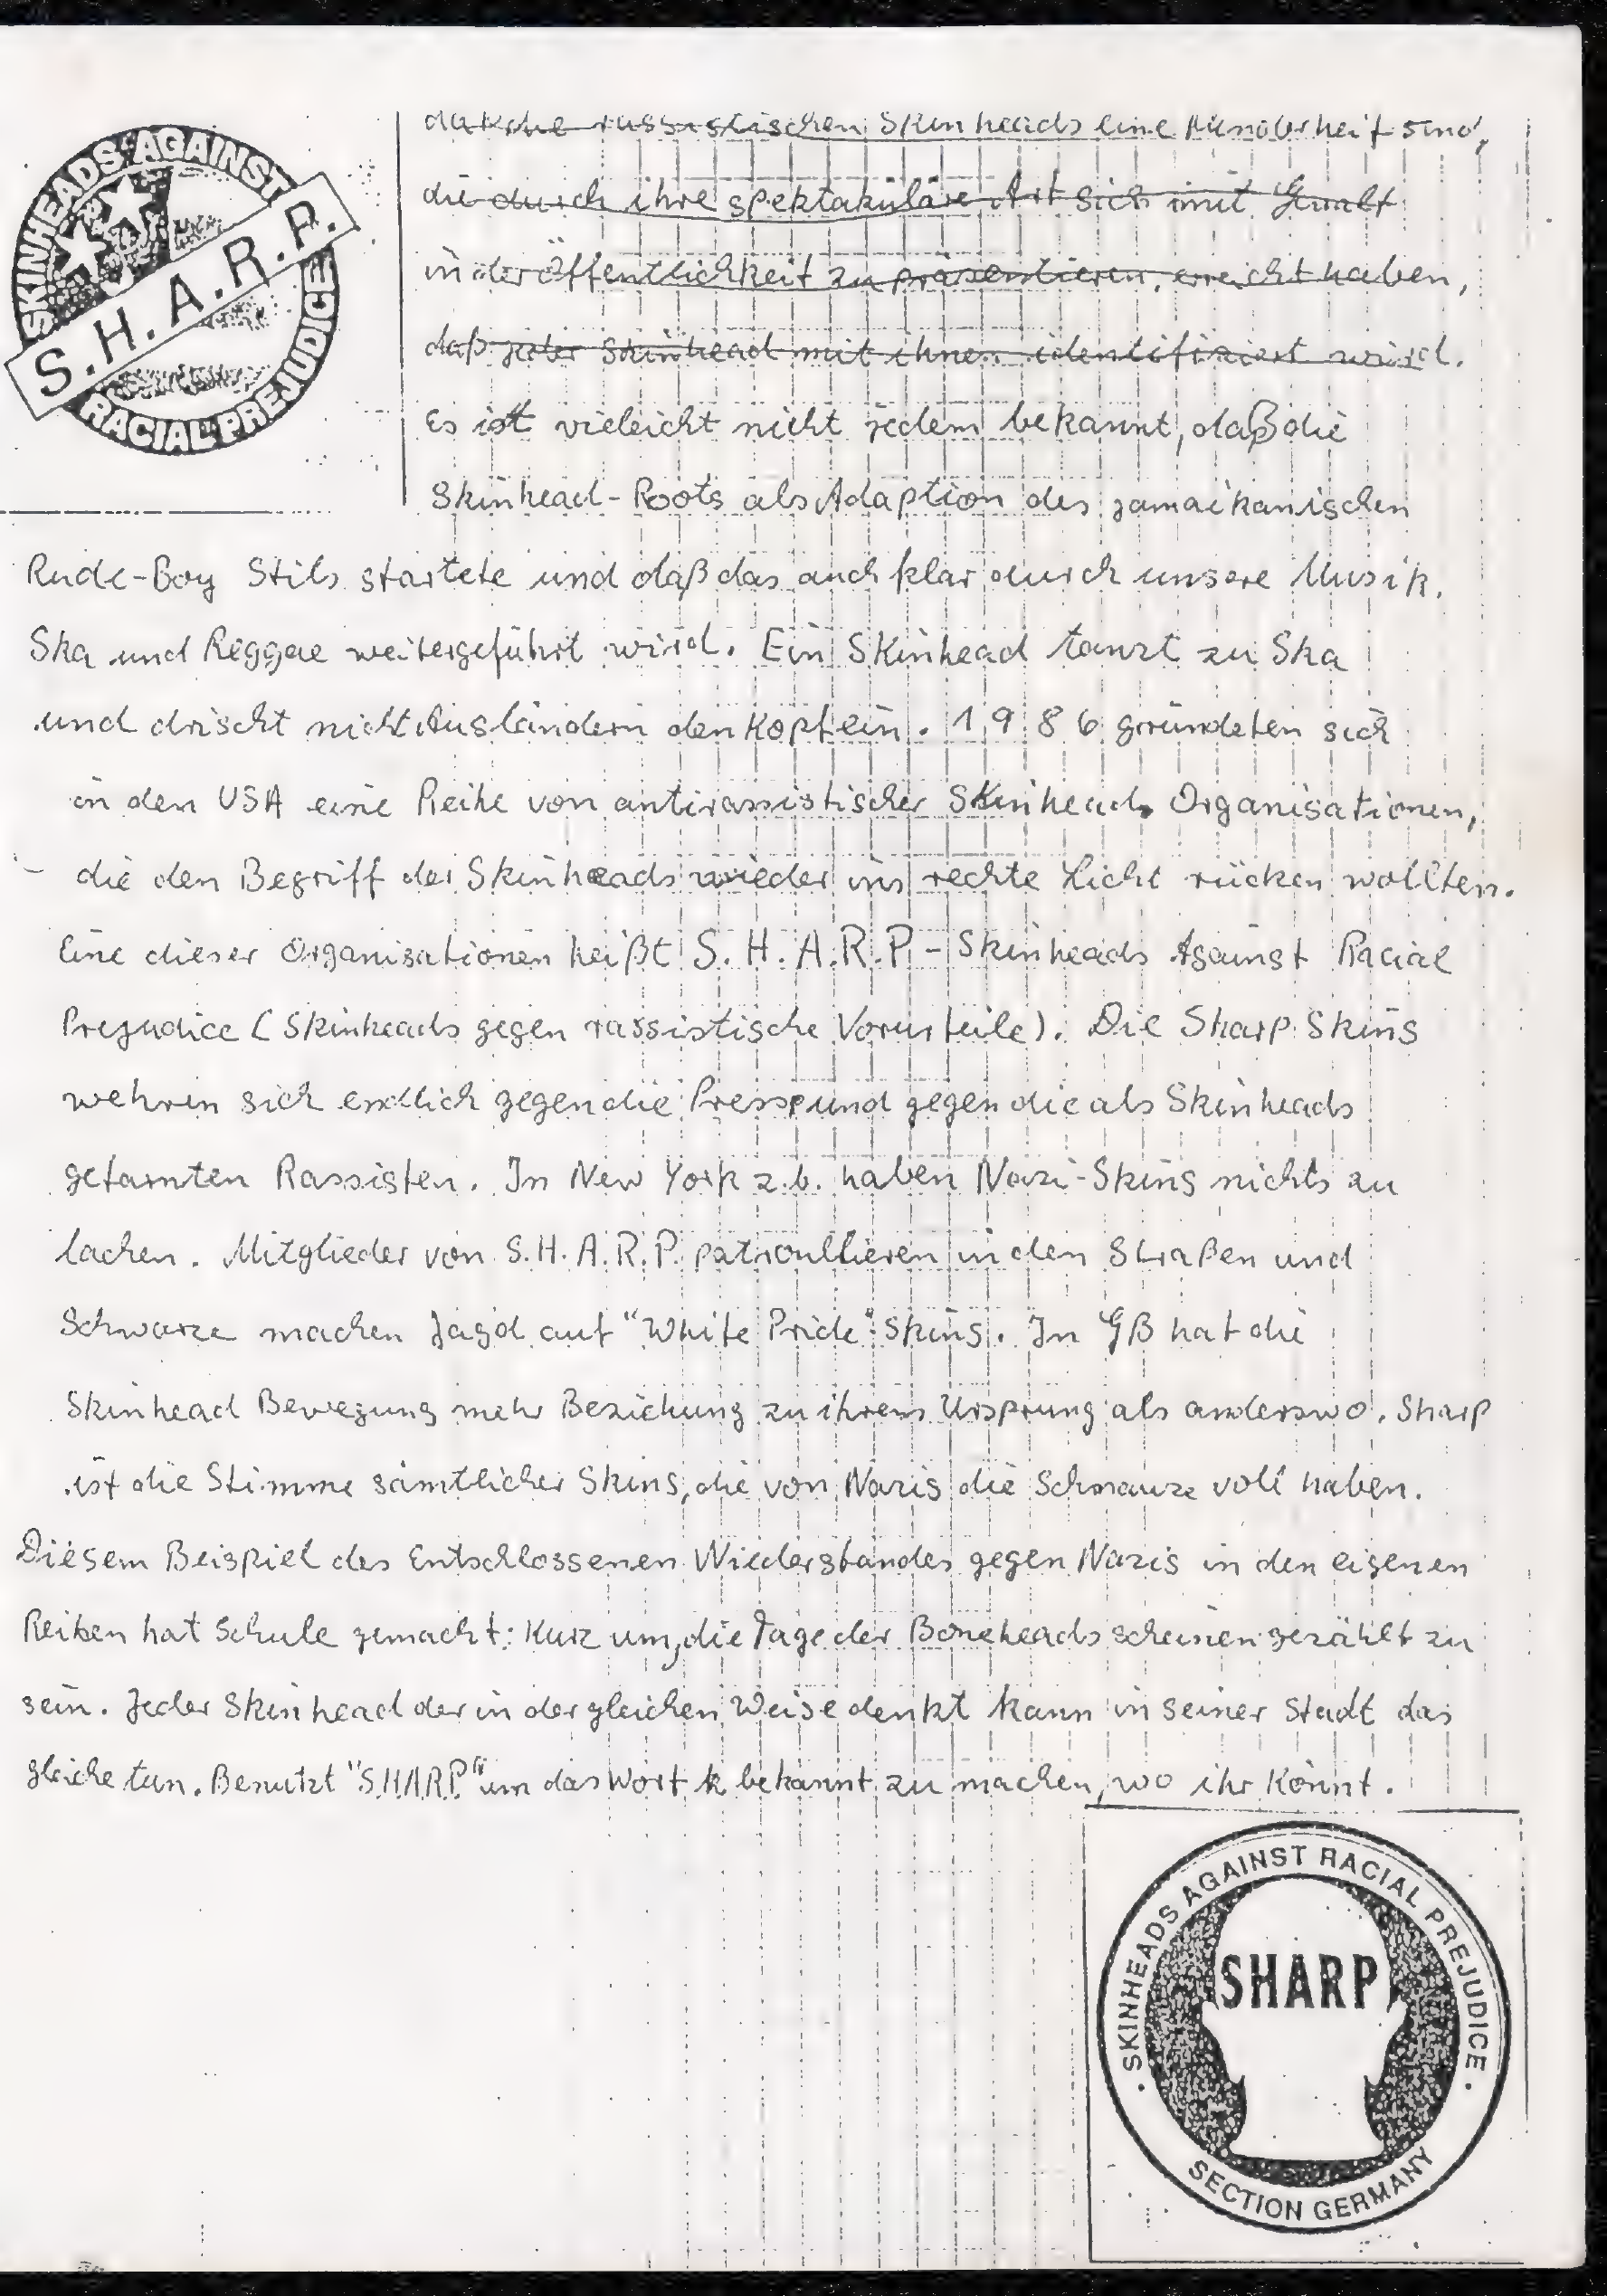 SKINHEADS AGAINST
S.H.A.R.P.
RACIAL PREJUDICE
rassistischen Skinheads eine Minderheit sind,
die durch ihre spektakuläre Art sich mit Gewalt
in der Öffentlichkeit zu präsentieren, erreicht haben,
daß jeder Skinhead mit ihnen identifiziert wird.
Es ist vieleicht nicht jedem bekannt, daß die
Skinhead-Roots als Adaption des jamaikanischen
Rude-Boy Stils startete und daß das auch klar durch unsere Musik.
Ska und Reggae weitergeführt wird. Ein Skinhead tanzt zu Ska
und drischt nicht Ausländern den Kopf ein. 1986 gründeten sich
in den USA eine Reihe von antirassistischer Skinheads Organisationen,
die den Begriff der Skinheads wieder ins rechte Licht rücken wollten.
Eine dieser Organisationen heißt S.H.A.R.P - Skinheads Against Racial
Prejudice (Skinheads gegen rassistische Vorurteile). Die Sharp Skins
wehren sich endlich gegen die Presse und gegen die als Skinheads
getarnten Rassisten. In New York z.b. haben Nazi-Skins nichts zu
lachen. Mitglieder von S.H.A.R.P. patroullieren in den Straßen und
Schwarze machen Jagd auf "White Pride"-Skins. In GB hat die
Skinhead Bewegung mehr Beziehung zu ihrem Ursprung als anderswo. Sharp
ist die Stimme sämtlicher Skins, die von Nazis die Schnauze voll haben.
Diesem Beispiel des Entschlossenen Wiederstandes gegen Nazis in den eigenen
Reihen hat Schule gemacht: Kurz um, die Tage der Boneheads scheinen gezählt zu
sein. Jeder Skinhead der in der gleichen Weise denkt kann in seiner Stadt das
gleiche tun. Benutzt "S.H.A.R.P." um das Wort bekannt zu machen, wo ihr Könnt.
· SKINHEADS AGAINST RACIAL PREJUDICE ·
SHARP
SECTION GERMANY